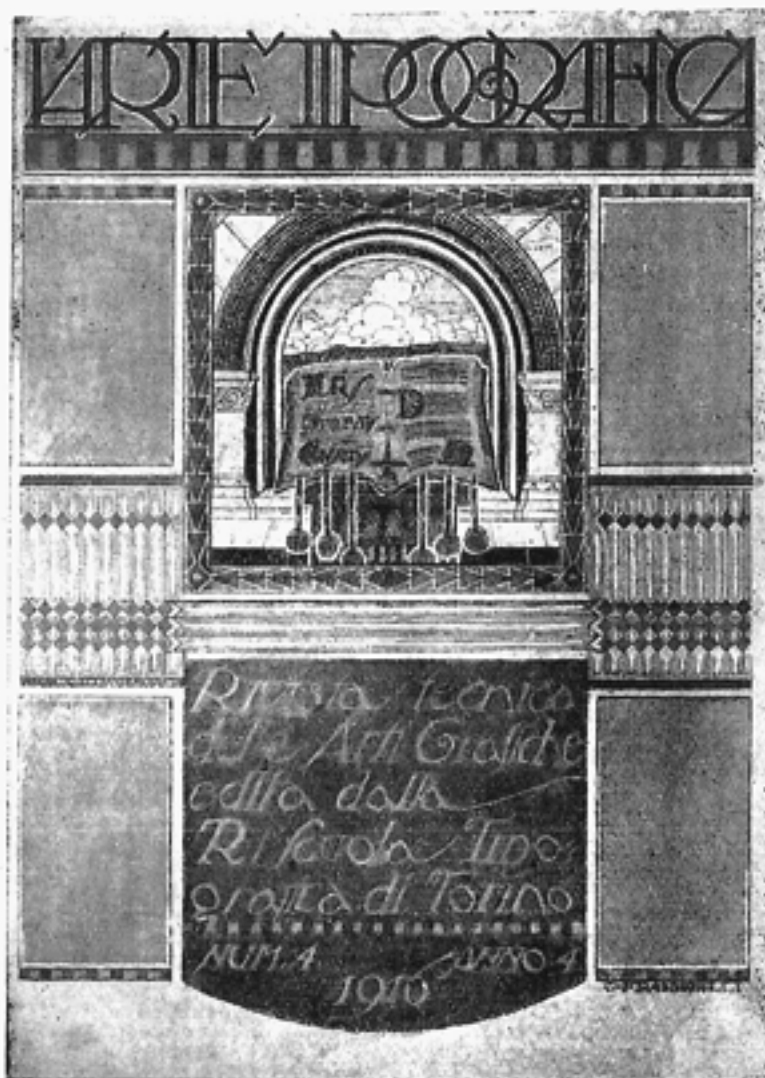 L'ARTE TIPOGRAFICA
ARS
Rivista tecnica
delle Arti Grafiche
edita dalla
R. Scuola Tipo-
grafica di Torino
NUM. 4 ANNO 4
1910